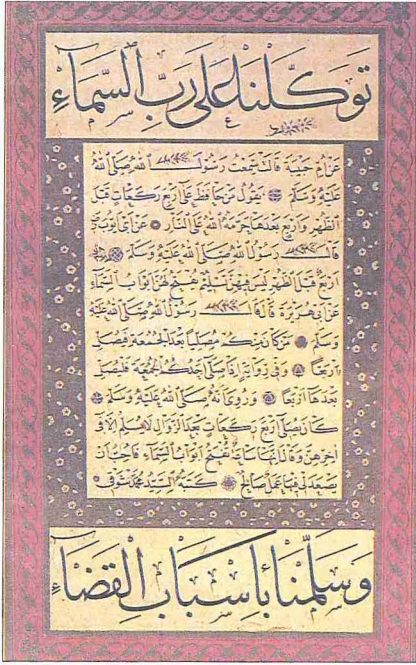 توكلنا على رب السماء
عن ام حبيبة قالت سمعت رسول الله صلى الله
عليه وسلم يقول من حافظ على اربع ركعات قبل
الظهر واربع بعدها حرمه الله على النار عن ابى ايوب
قال رسول الله صلى الله عليه وسلم
اربع قبل الظهر ليس فيهن تسليم تفتح لهن ابواب السماء
عن ابى هريرة قال قال رسول الله صلى الله عليه
وسلم من كان منكم مصليا بعد الجمعة فليصل
اربعا وفى رواية اذا صلى احدكم الجمعة فليصل
بعدها اربعا وروى انه صلى الله عليه وسلم
كان يصلى اربع ركعات بعد الزوال لا يسلم الا فى
اخرهن وقال انها ساعة تفتح ابواب السماء فاحب ان
يصعد لى فيها عمل صالح كتبه السيد محمد شوقى
وسلمنا باسباب القضاء